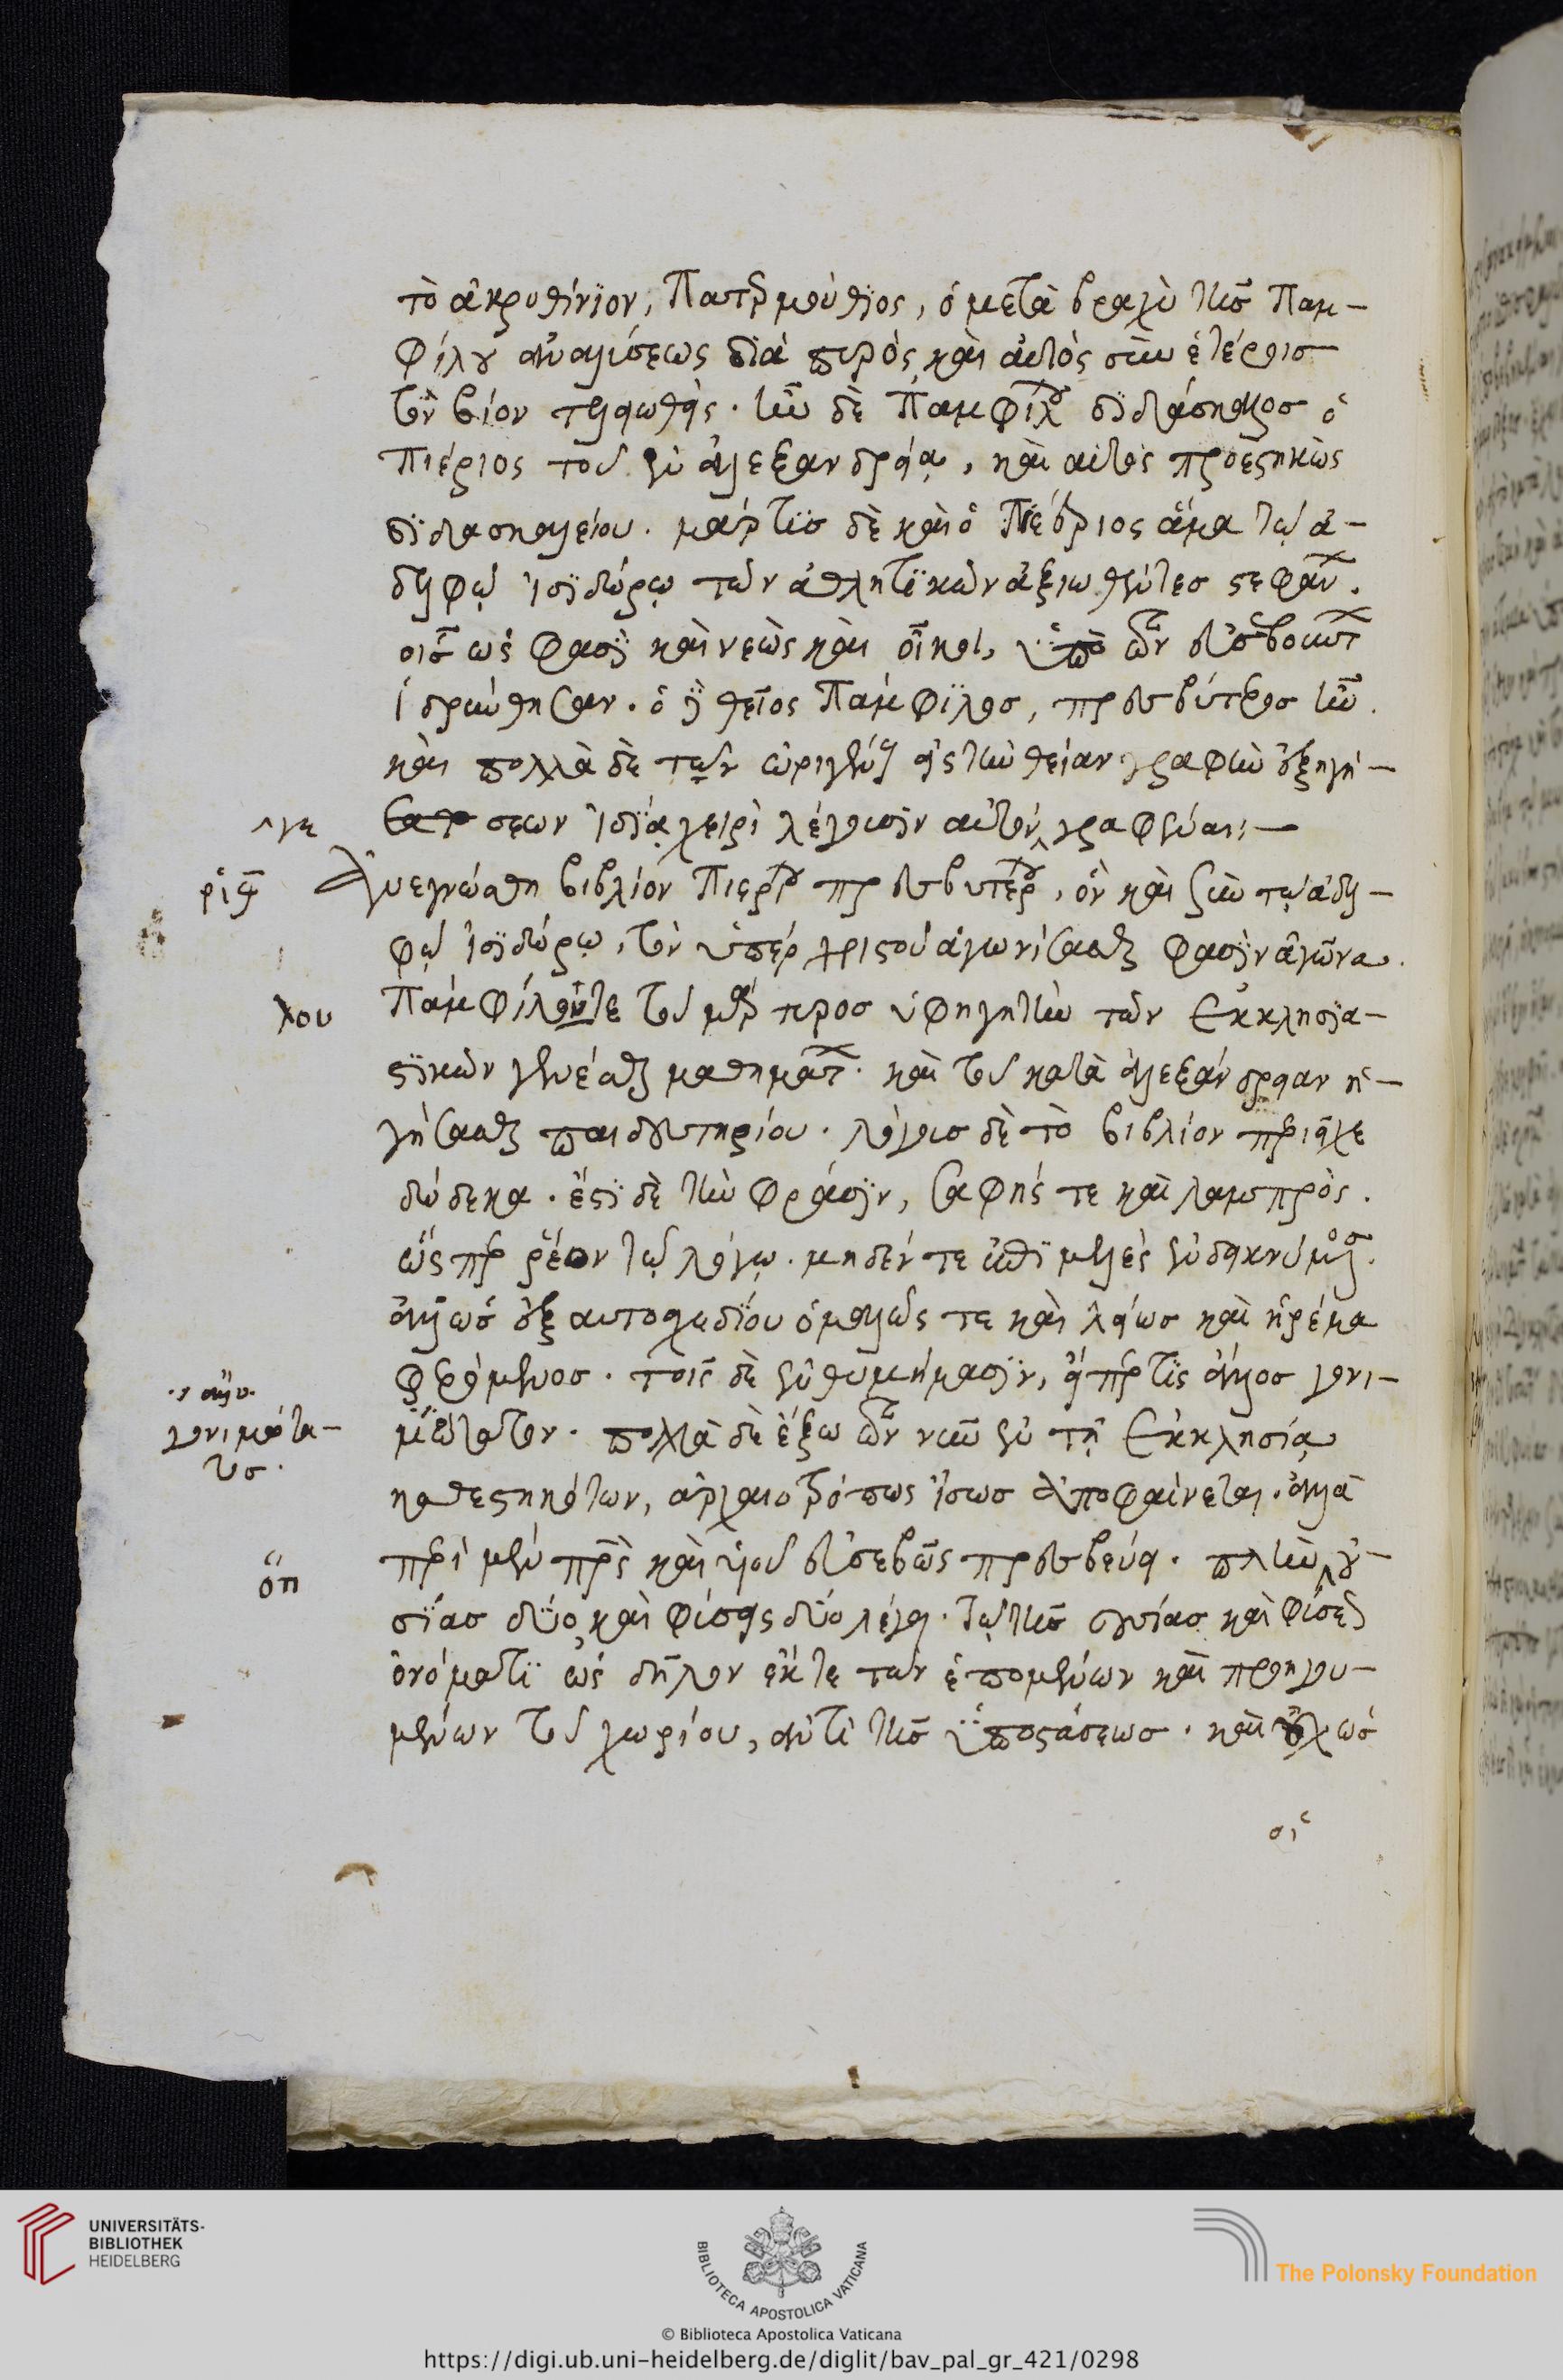 τὸ ἀκροθίνιον, Πατερμούθιος, ὁ μετὰ βραχὺ τῆς Παμ-
φίλου ἀναιρέσεως διὰ πυρὸς καὶ αὐτὸς σὺν ἑτέροις
τὸν βίον τελειωθείς. ἦν δὲ Παμφίλου διδάσκαλος ὁ
Πιέριος τοῦ ἐν ἀλεξανδρείᾳ, καὶ αὐτὸς προεστηκὼς
διδασκαλείου. μάρτυς δὲ καὶ ὁ Πιέριος ἅμα τῷ ἀ-
δελφῷ ἰσιδώρῳ τῶν ἀθλητικῶν ἀξιωθέντες στεφάνων.
οἷς ὥς φασι καὶ νεὼς καὶ οἶκοι, ὑπὸ τῶν εὐσεβούντων
ἱδρύνθησαν. ὁ δὲ θεῖος Πάμφιλος, πρεσβύτερος ἦν.
καὶ πολλὰ δὲ τῶν ὠριγένους εἰς τὴν θείαν γραφὴν ἐξηγή-
σεων ἰδίᾳ χειρὶ λέγουσιν αὐτὸν γραφέναι:-
γε
ριθ Ἀνεγνώσθη βιβλίον Πιερίου πρεσβυτέρου, ὃν καὶ σὺν τῷ ἀδελ-
φῷ ἰσιδώρῳ, τὸν ὑπὲρ χριστοῦ ἀγωνίσασθαι φασὶν ἀγῶνα.
λου Παμφίλον τε τοῦ μάρτυρος ὑφηγητὴν τῶν ἐκκλησια-
στικῶν γενέσθαι μαθημάτων. καὶ τοῦ κατὰ ἀλεξάνδρειαν ἡ-
γήσασθαι παιδευτηρίου. λόγους δὲ τὸ βιβλίον περιεῖχε
δώδεκα. ἔστι δὲ τὴν φράσιν, σαφής τε καὶ λαμπρὸς.
ὥσπερ ῥέων τῷ λόγῳ. μηδέν τε ἐπιμελὲς ἐνδεικνύμενος.
ἀλλ' ὡς ἐξ αὐτοσχεδίου ὁμαλῶς τε καὶ λείως καὶ ἠρέμα
φερόμενος. τοῖς δὲ ἐνθυμήμασιν, εἴπερ τις ἄλλος γονι-
γονιμώτα-
τος.
μώτατον. πολλὰ δὲ ἔξω τῶν νῦν ἐν τῇ ἐκκλησίᾳ
καθεστηκότων, ἀρχαιοτρόπως ἴσως ἀποφαίνεται. ἀλλὰ
περὶ μὲν πατρὸς καὶ υἱοῦ εὐσεβῶς πρεσβεύει. πλὴν οὐ-
ὅτι
σίας δύο καὶ φύσεις δύο λέγει. τῷ τῆς οὐσίας καὶ φύσεως
ὀνόματι ὡς δῆλον ἔκ τε τῶν ἑπομένων καὶ προηγου-
μένων τοῦ χωρίου, ἀντὶ τῆς ὑποστάσεως. καὶ οὐχ ὡς
οἱ
UNIVERSITÄTS-
BIBLIOTHEK
HEIDELBERG
BIBLIOTECA APOSTOLICA VATICANA
The Polonsky Foundation
© Biblioteca Apostolica Vaticana
https://digi.ub.uni-heidelberg.de/diglit/bav_pal_gr_421/0298